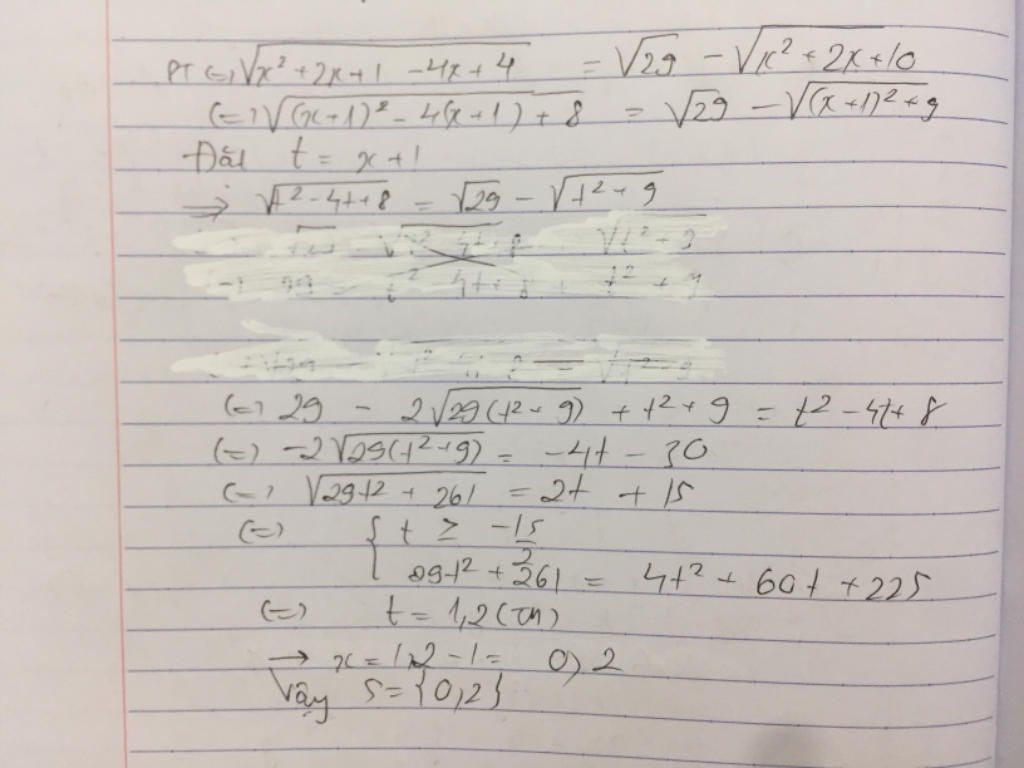 PT (=) √(x² + 2x + 1 - 4x + 4) = √29 - √(x² + 2x + 10)
(=) √((x+1)² - 4(x+1) + 8) = √29 - √((x+1)² + 9)
Đặt t = x + 1
=> √(t² - 4t + 8) = √29 - √(t² + 9)
(=) 29 - 2√(29(t² + 9)) + t² + 9 = t² - 4t + 8
(=) -2√(29(t² + 9)) = -4t - 30
(=) √(29t² + 261) = 2t + 15
(=) { t ≥ -15/2
29t² + 261 = 4t² + 60t + 225
(=) t = 1,2 (TM)
→ x = 1,2 - 1 = 0,2
Vậy S = {0,2}